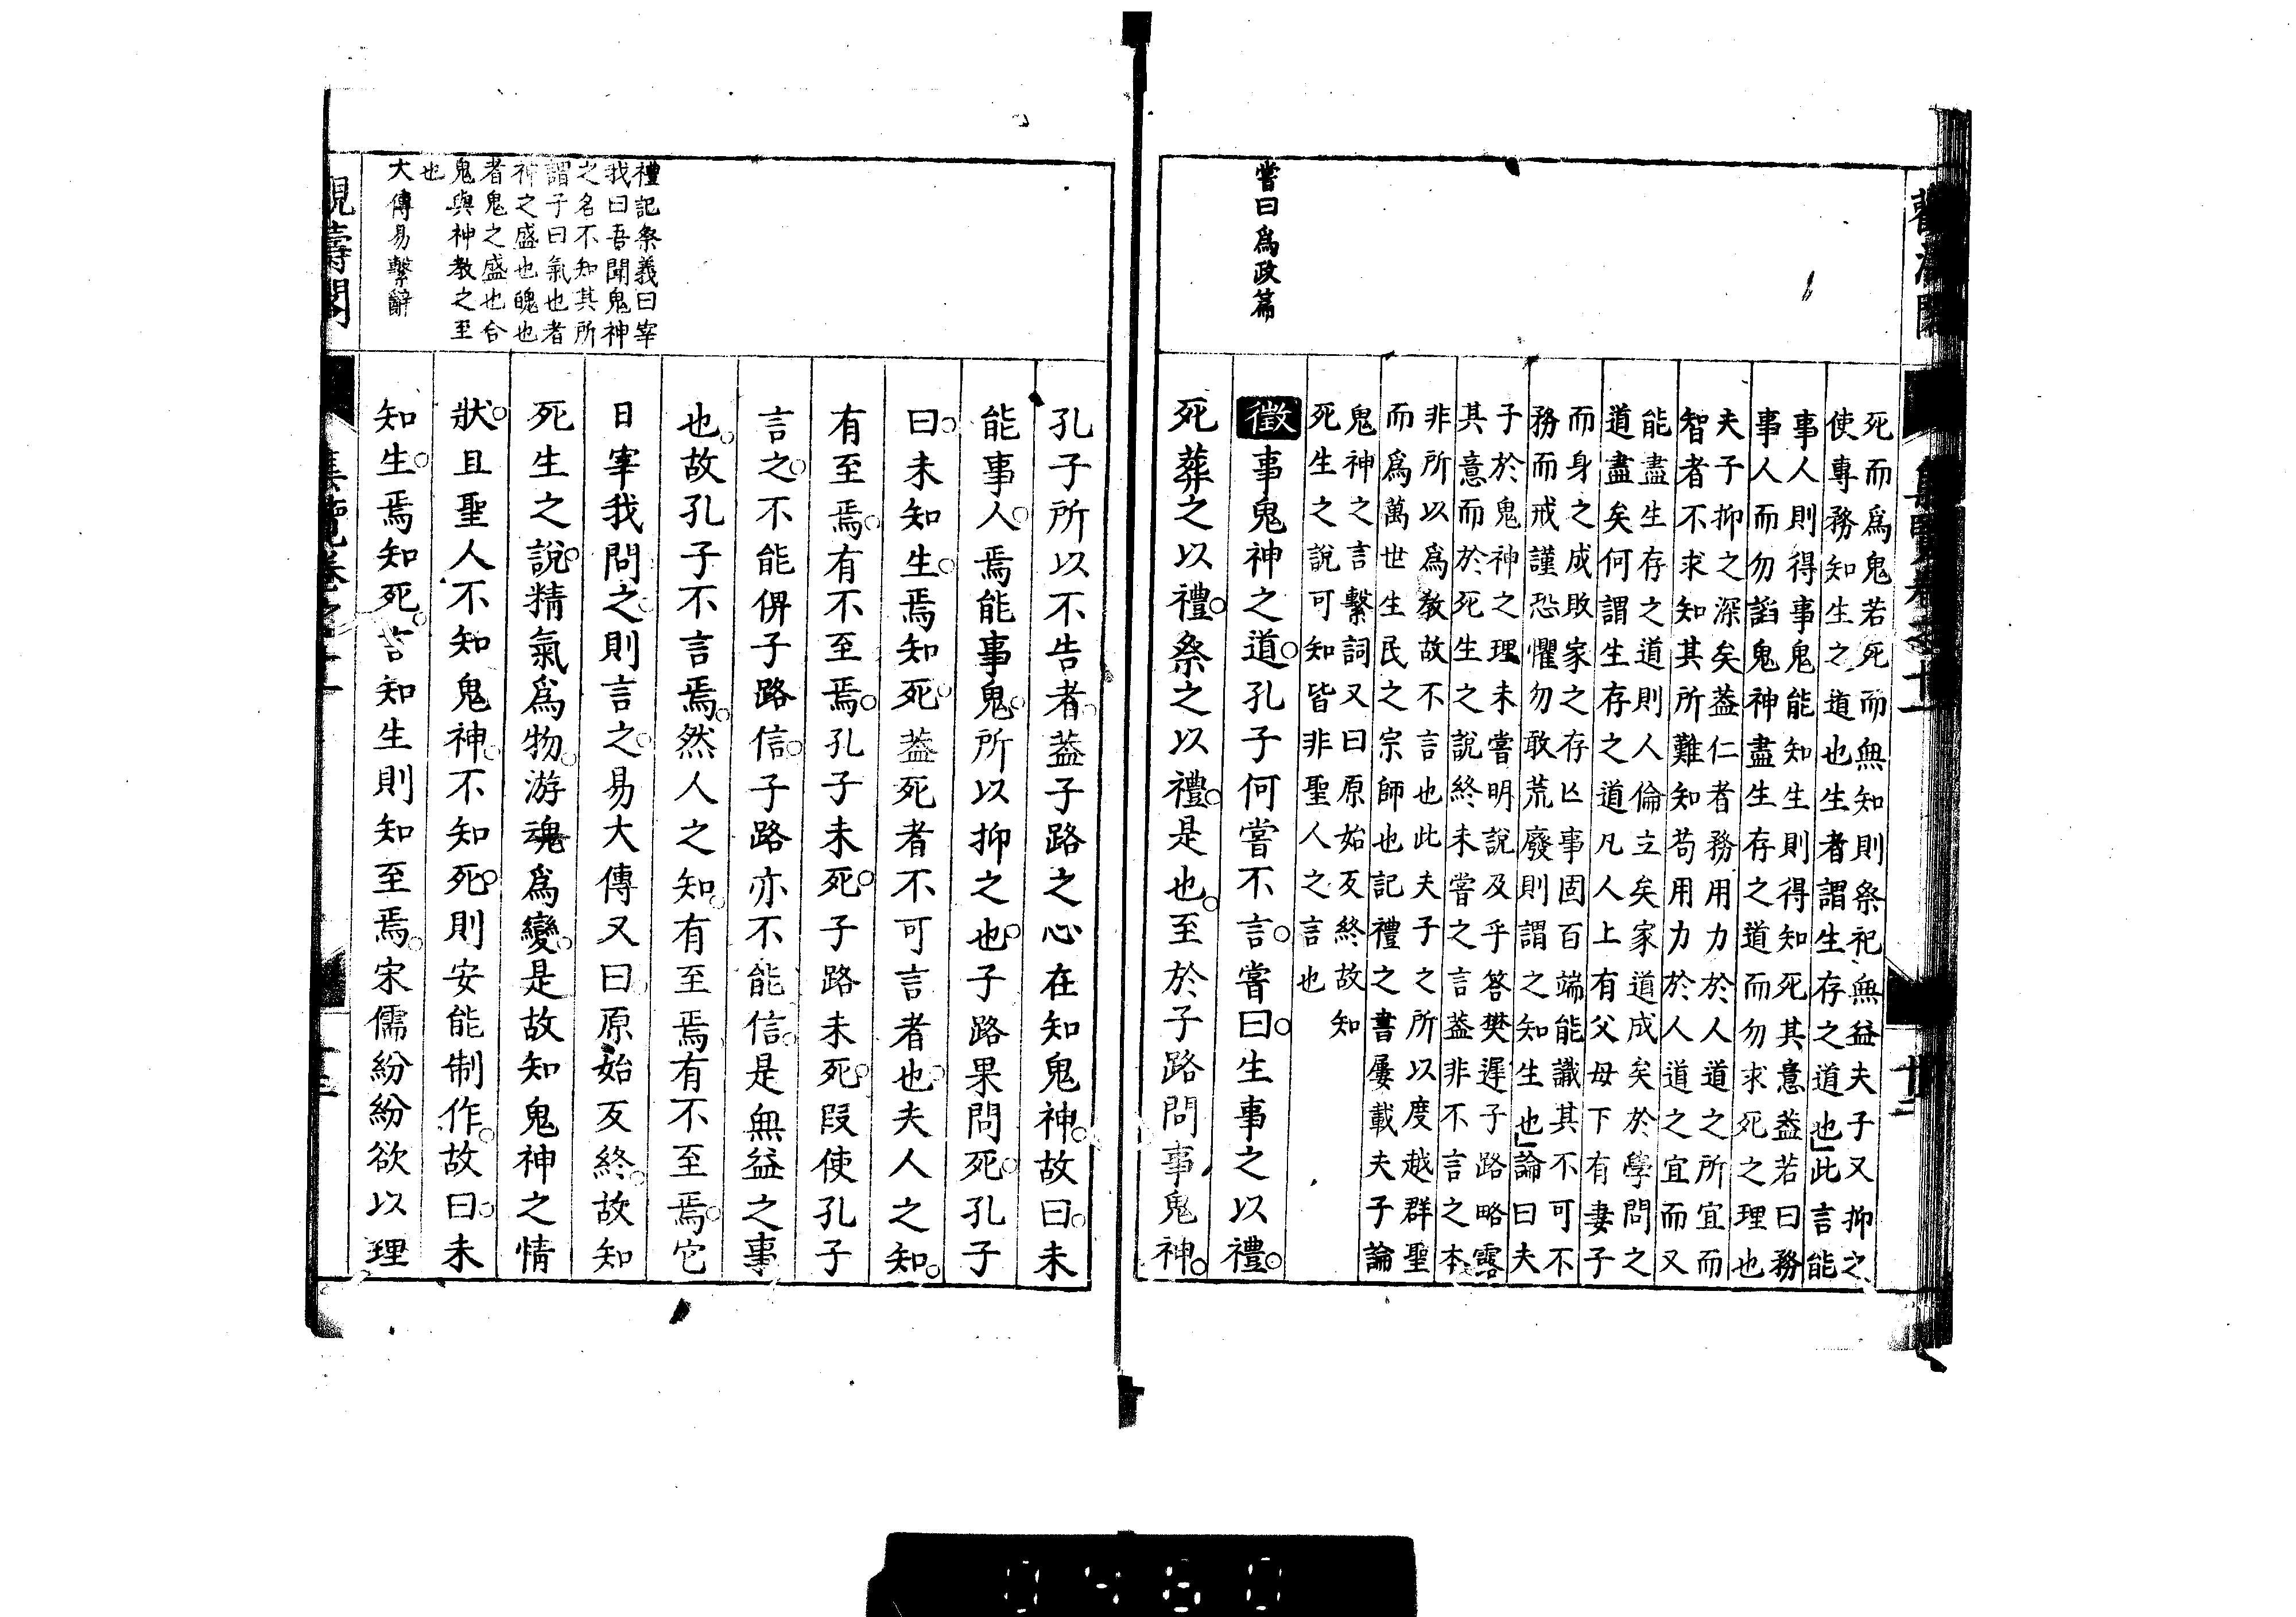 死而爲鬼若死而無知則祭祀無益夫子又抑之
使專務知生之道也生者謂生存之道也」此言能
事人則得事鬼能知生則得知死其意葢若曰務
事人而勿諂鬼神盡生存之道而勿求死之理也
夫子抑之深矣葢仁者務用力於人道之所宜而
智者不求知其所難知苟用力於人道之宜而又
能盡生存之道則人倫立矣家道成矣於學問之
道盡矣何謂生存之道凡人上有父母下有妻子
而身之成敗家之存亡事固百端能識其不可不
務而戒謹恐懼勿敢荒廢則謂之知生也」論曰夫
子於鬼神之理未嘗明說及乎答樊遲子路略露
其意而於死生之說終未嘗之言葢非不言之本
非所以爲教故不言也此夫子之所以度越群聖
而爲萬世生民之宗師也記禮之書屢載夫子論
鬼神之言繫詞又曰原始反終故知
死生之說可知皆非聖人之言也
嘗曰爲政篇
徵事鬼神之道。孔子何嘗不言。嘗曰。生事之以禮。
死葬之以禮。祭之以禮。是也。至於子路問事鬼神。
孔子所以不告者。葢子路之心在知鬼神。故曰。未
能事人。焉能事鬼。所以抑之也。子路果問死。孔子
曰。未知生。焉知死。葢死者不可言者也。夫人之知。
有至焉。有不至焉。孔子未死。子路未死。叚使孔子
言之。不能俾子路信。子路亦不能信。是無益之事
也。故孔子不言焉。然人之知。有至焉有不至焉。它
日宰我問之。則言之。易大傳又曰。原始反終。故知
死生之說。精氣爲物。游魂爲變。是故知鬼神之情
狀。且聖人不知鬼神。不知死。則安能制作。故曰。未
知生。焉知死。言知生則知至焉。宋儒紛紛欲以理
禮記祭義曰宰
我曰吾聞鬼神
之名不知其所
謂子曰氣也者
神之盛也魄也
者鬼之盛也合
鬼與神教之至
也
大傳易繫辭
0460